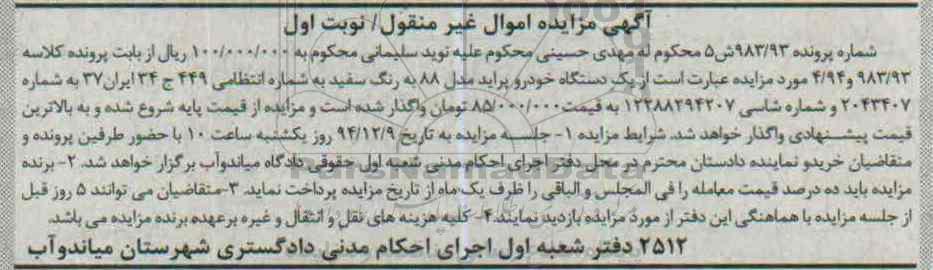 آگهی مزایده اموال غیر منقول/ نوبت اول
شماره پرونده ۹۸۳/۹۳ش۵ محکوم له مهدی حسینی محکوم علیه نوید سلیمانی محکوم به ۱۰۰/۰۰۰/۰۰۰ ریال از بابت پرونده کلاسه
۹۸۳/۹۳ و۴/۹۴ مورد مزایده عبارت است از یک دستگاه خودرو پراید مدل ۸۸ به رنگ سفید به شماره انتظامی ۴۴۹ ج ۳۴ ایران۳۷ به شماره
۲۰۴۳۴۰۷ و شماره شاسی ۱۲۲۸۸۲۹۴۲۰۷ به قیمت ۸۵/۰۰۰/۰۰۰ تومان واگذار شده است و مزایده از قیمت پایه شروع شده و به بالاترین
قیمت پیشنهادی واگذار خواهد شد. شرایط مزایده ۱- جلسه مزایده به تاریخ ۹۴/۱۲/۹ روز یکشنبه ساعت ۱۰ با حضور طرفین پرونده و
متقاضیان خریدو نماینده دادستان محترم در محل دفتر اجرای احکام مدنی شعبه اول حقوقی دادگاه میاندوآب برگزار خواهد شد. ۲- برنده
مزایده باید ده درصد قیمت معامله را فی المجلس و الباقی را ظرف یک ماه از تاریخ مزایده پرداخت نماید. ۳-متقاضیان می توانند ۵ روز قبل
از جلسه مزایده با هماهنگی این دفتر از مورد مزایده بازدید نمایند.۴- کلیه هزینه های نقل و انتقال و غیره برعهده برنده مزایده می باشد.
۲۵۱۲ دفتر شعبه اول اجرای احکام مدنی دادگستری شهرستان میاندوآب
ParsNamadData